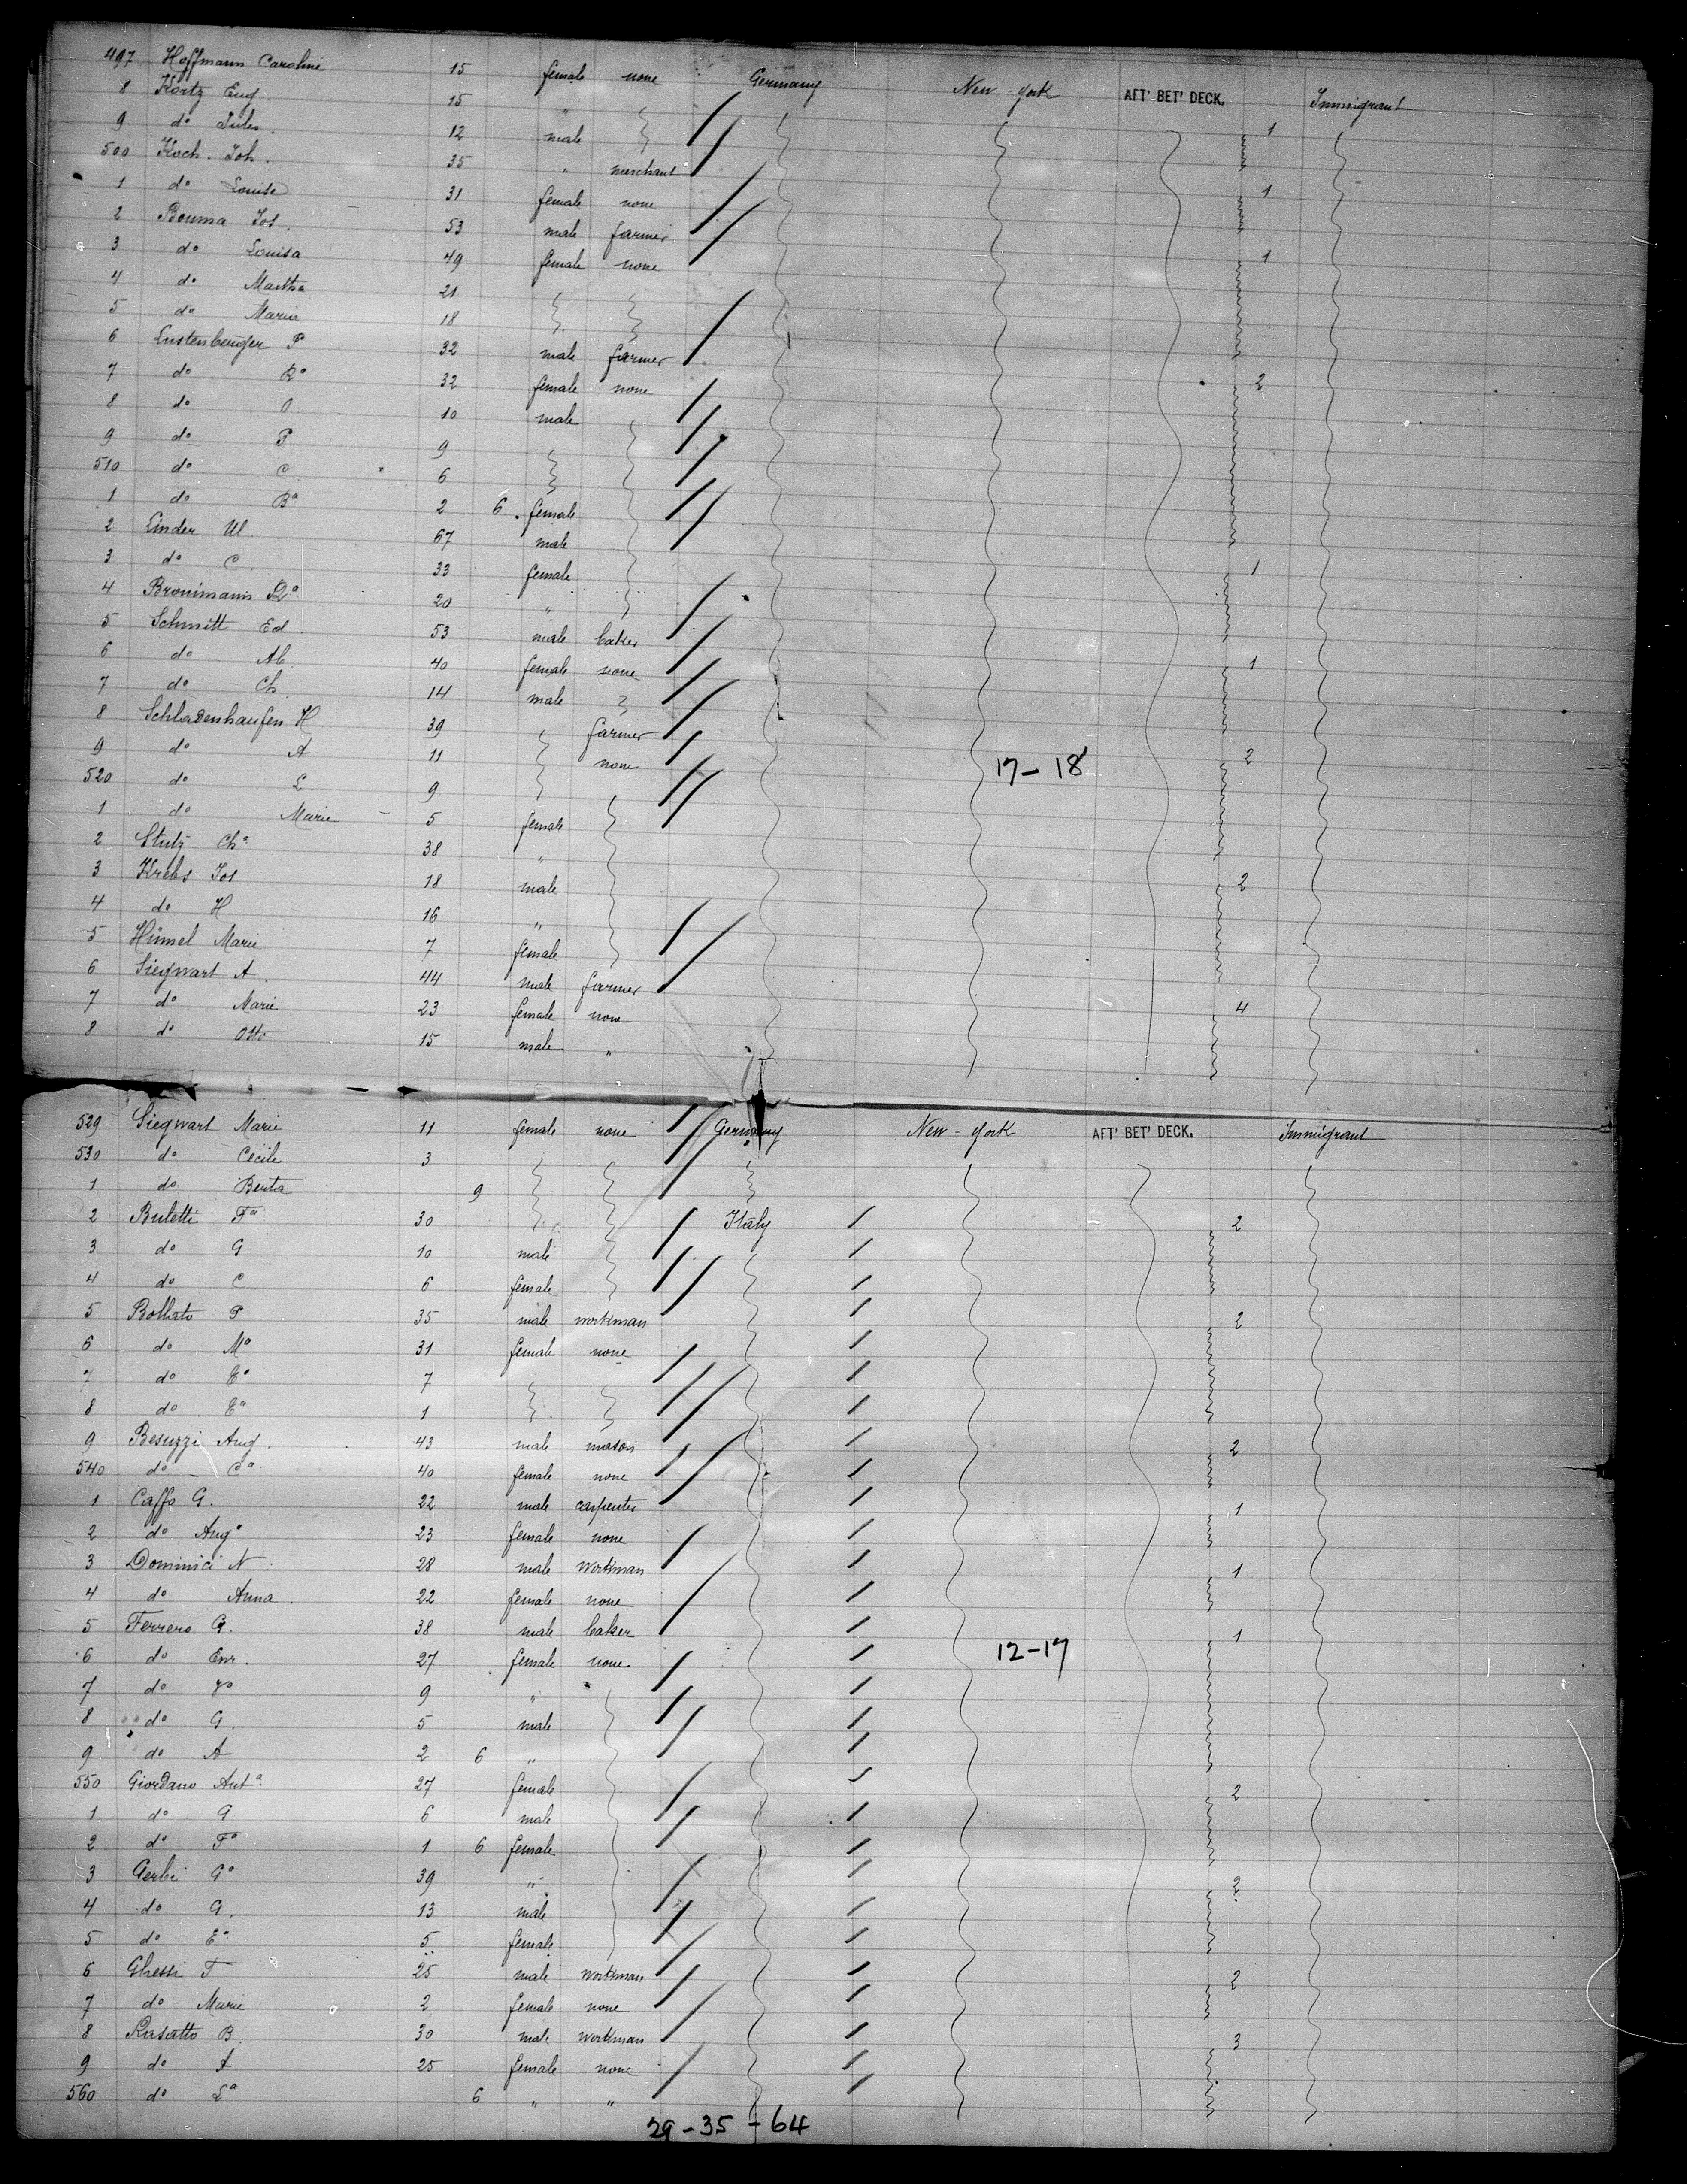 497 Hoffmann Caroline 15 female none Germany New-York AFT' BET' DECK. Immigrant
8 Kortz Eug. 15 " 1
9 do Jules. 12 male
500 Koch. Joh. 35 " merchant
1 do Louise 31 female none 1
2 Bouma Jos. 53 male farmer
3 do Louisa 49 female none 1
4 do Martha 21
5 do Marie 18
6 Lustenberger P 32 male farmer
7 do Ra 32 female none 2
8 do O 10 male
9 do P 9
510 do C 6
1 do Ba 2 6 female
2 Linder Ul. 67 male
3 do C. 33 female 1
4 Bronimann Ra 20 "
5 Schmitt Ed. 53 male baker
6 do Alb. 40 female none 1
7 do Ch. 14 male
8 Schladenhaufen H 39 farmer
9 do A 11 none 17-18 2
520 do L. 9
1 do Marie 5 female
2 Stutz Cha 38 "
3 Krebs Jos 18 male 2
4 do H 16 "
5 Hümel Marie 7 female
6 Siegwart A. 44 male farmer
7 do Marie 23 female none 4
8 do Otto 15 male "
529 Siegwart Marie 11 female none Germany New-York AFT' BET' DECK. Immigrant
530 do Cecile 3
1 do Berta 9
2 Buletti Fa 30 Italy 2
3 do G 10 male
4 do C 6 female
5 Bollato P 35 male workman 2
6 do Ma 31 female none
7 do Ca 7
8 do Ea 1
9 Besuzzi Aug. 43 male mason 2
540 do Ca 40 female none
1 Caffo G. 22 male carpenter 1
2 do Anga 23 female none
3 Dominici N. 28 male workman 1
4 do Anna. 22 female none
5 Ferrero G. 38 male baker 1
6 do Enr. 27 female none 12-17
7 do 9 "
8 do G. 5 male
9 do A 2 6 "
550 Giordano Anta. 27 female 2
1 do G 6 male
2 do Fa 1 6 female
3 Gerbi Ga 39 " 2
4 do G. 13 male
5 do Ea 5 female
6 Ghessi F 25 male workman 2
7 do Marie 2 female none
8 Rasatto B. 30 male workman 3
9 do A 25 female none
560 do La 6 " "
29-35-64